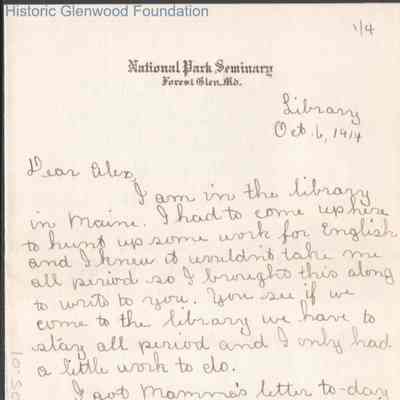 Historic Glenwood Foundation
1/4
National Park Seminary
Forest Glen, Md.
Library
Oct. 6, 1914
Dear Alex,
I am in the library
in Maine. I had to come up here
to hunt up some work for English
and I knew it wouldn't take me
all period so I brought this along
to write to you. You see if we
come to the library we have to
stay all period and I only had
a little work to do.
I got Mamma's letter to-day